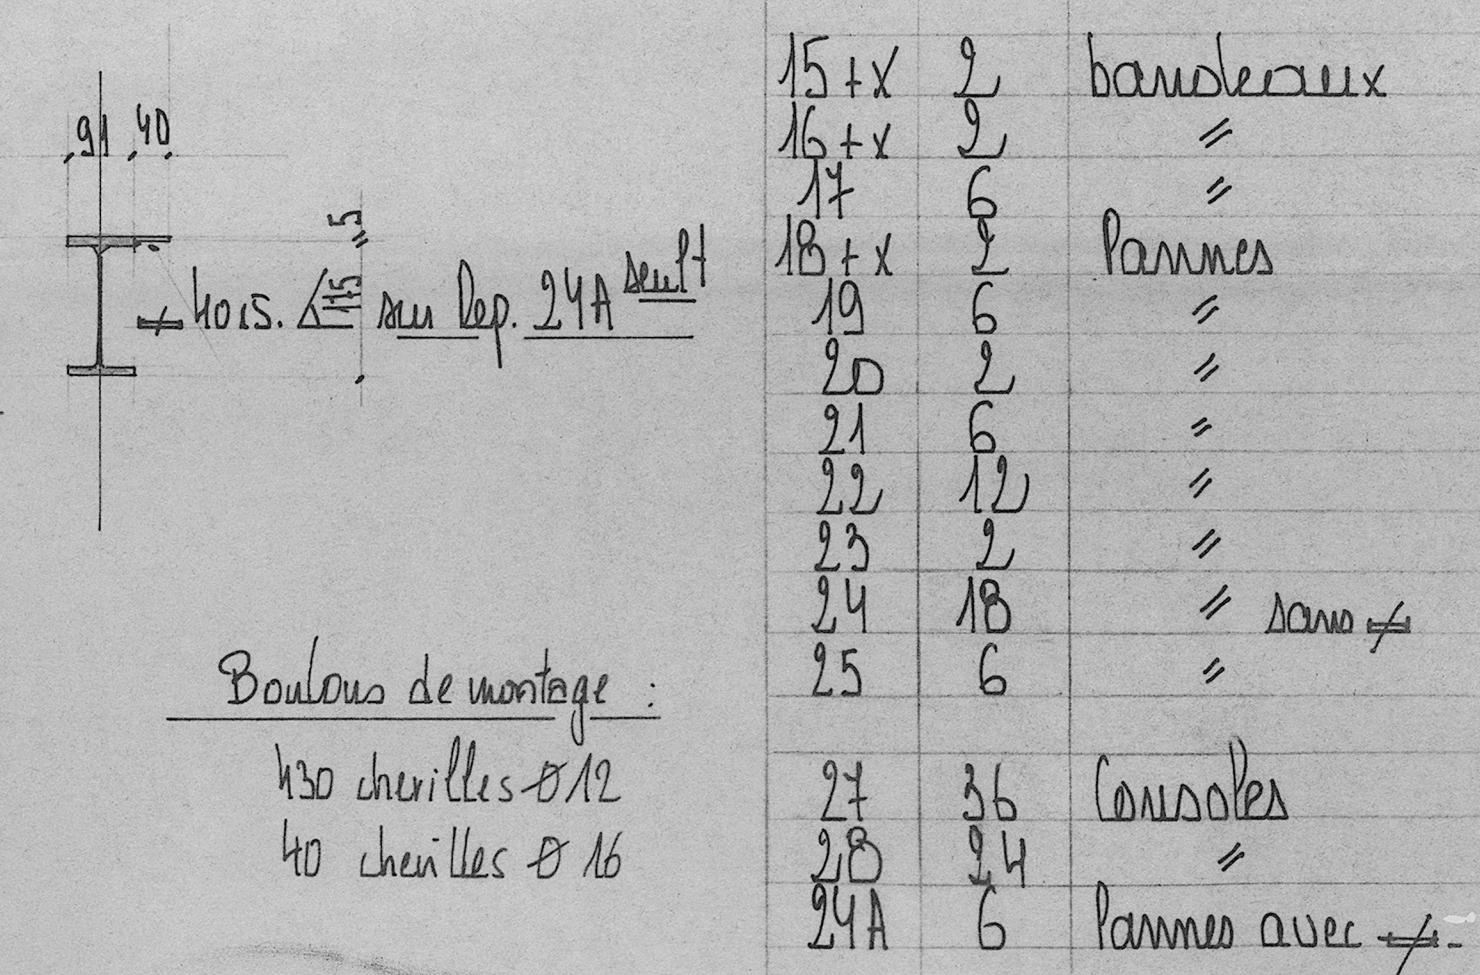 91 40
5
40x5. 175 sur Rep. 24A seult
Boulons de montage :
430 chevilles Ø 12
40 chevilles Ø 16
15+x 2 bandeaux
16+x 2 〃
17 6 〃
18+x 2 Pannes
19 6 〃
20 2 〃
21 6 〃
22 12 〃
23 2 〃
24 18 〃 sans
25 6 〃
27 36 Consoles
28 24 〃
24A 6 Pannes avec